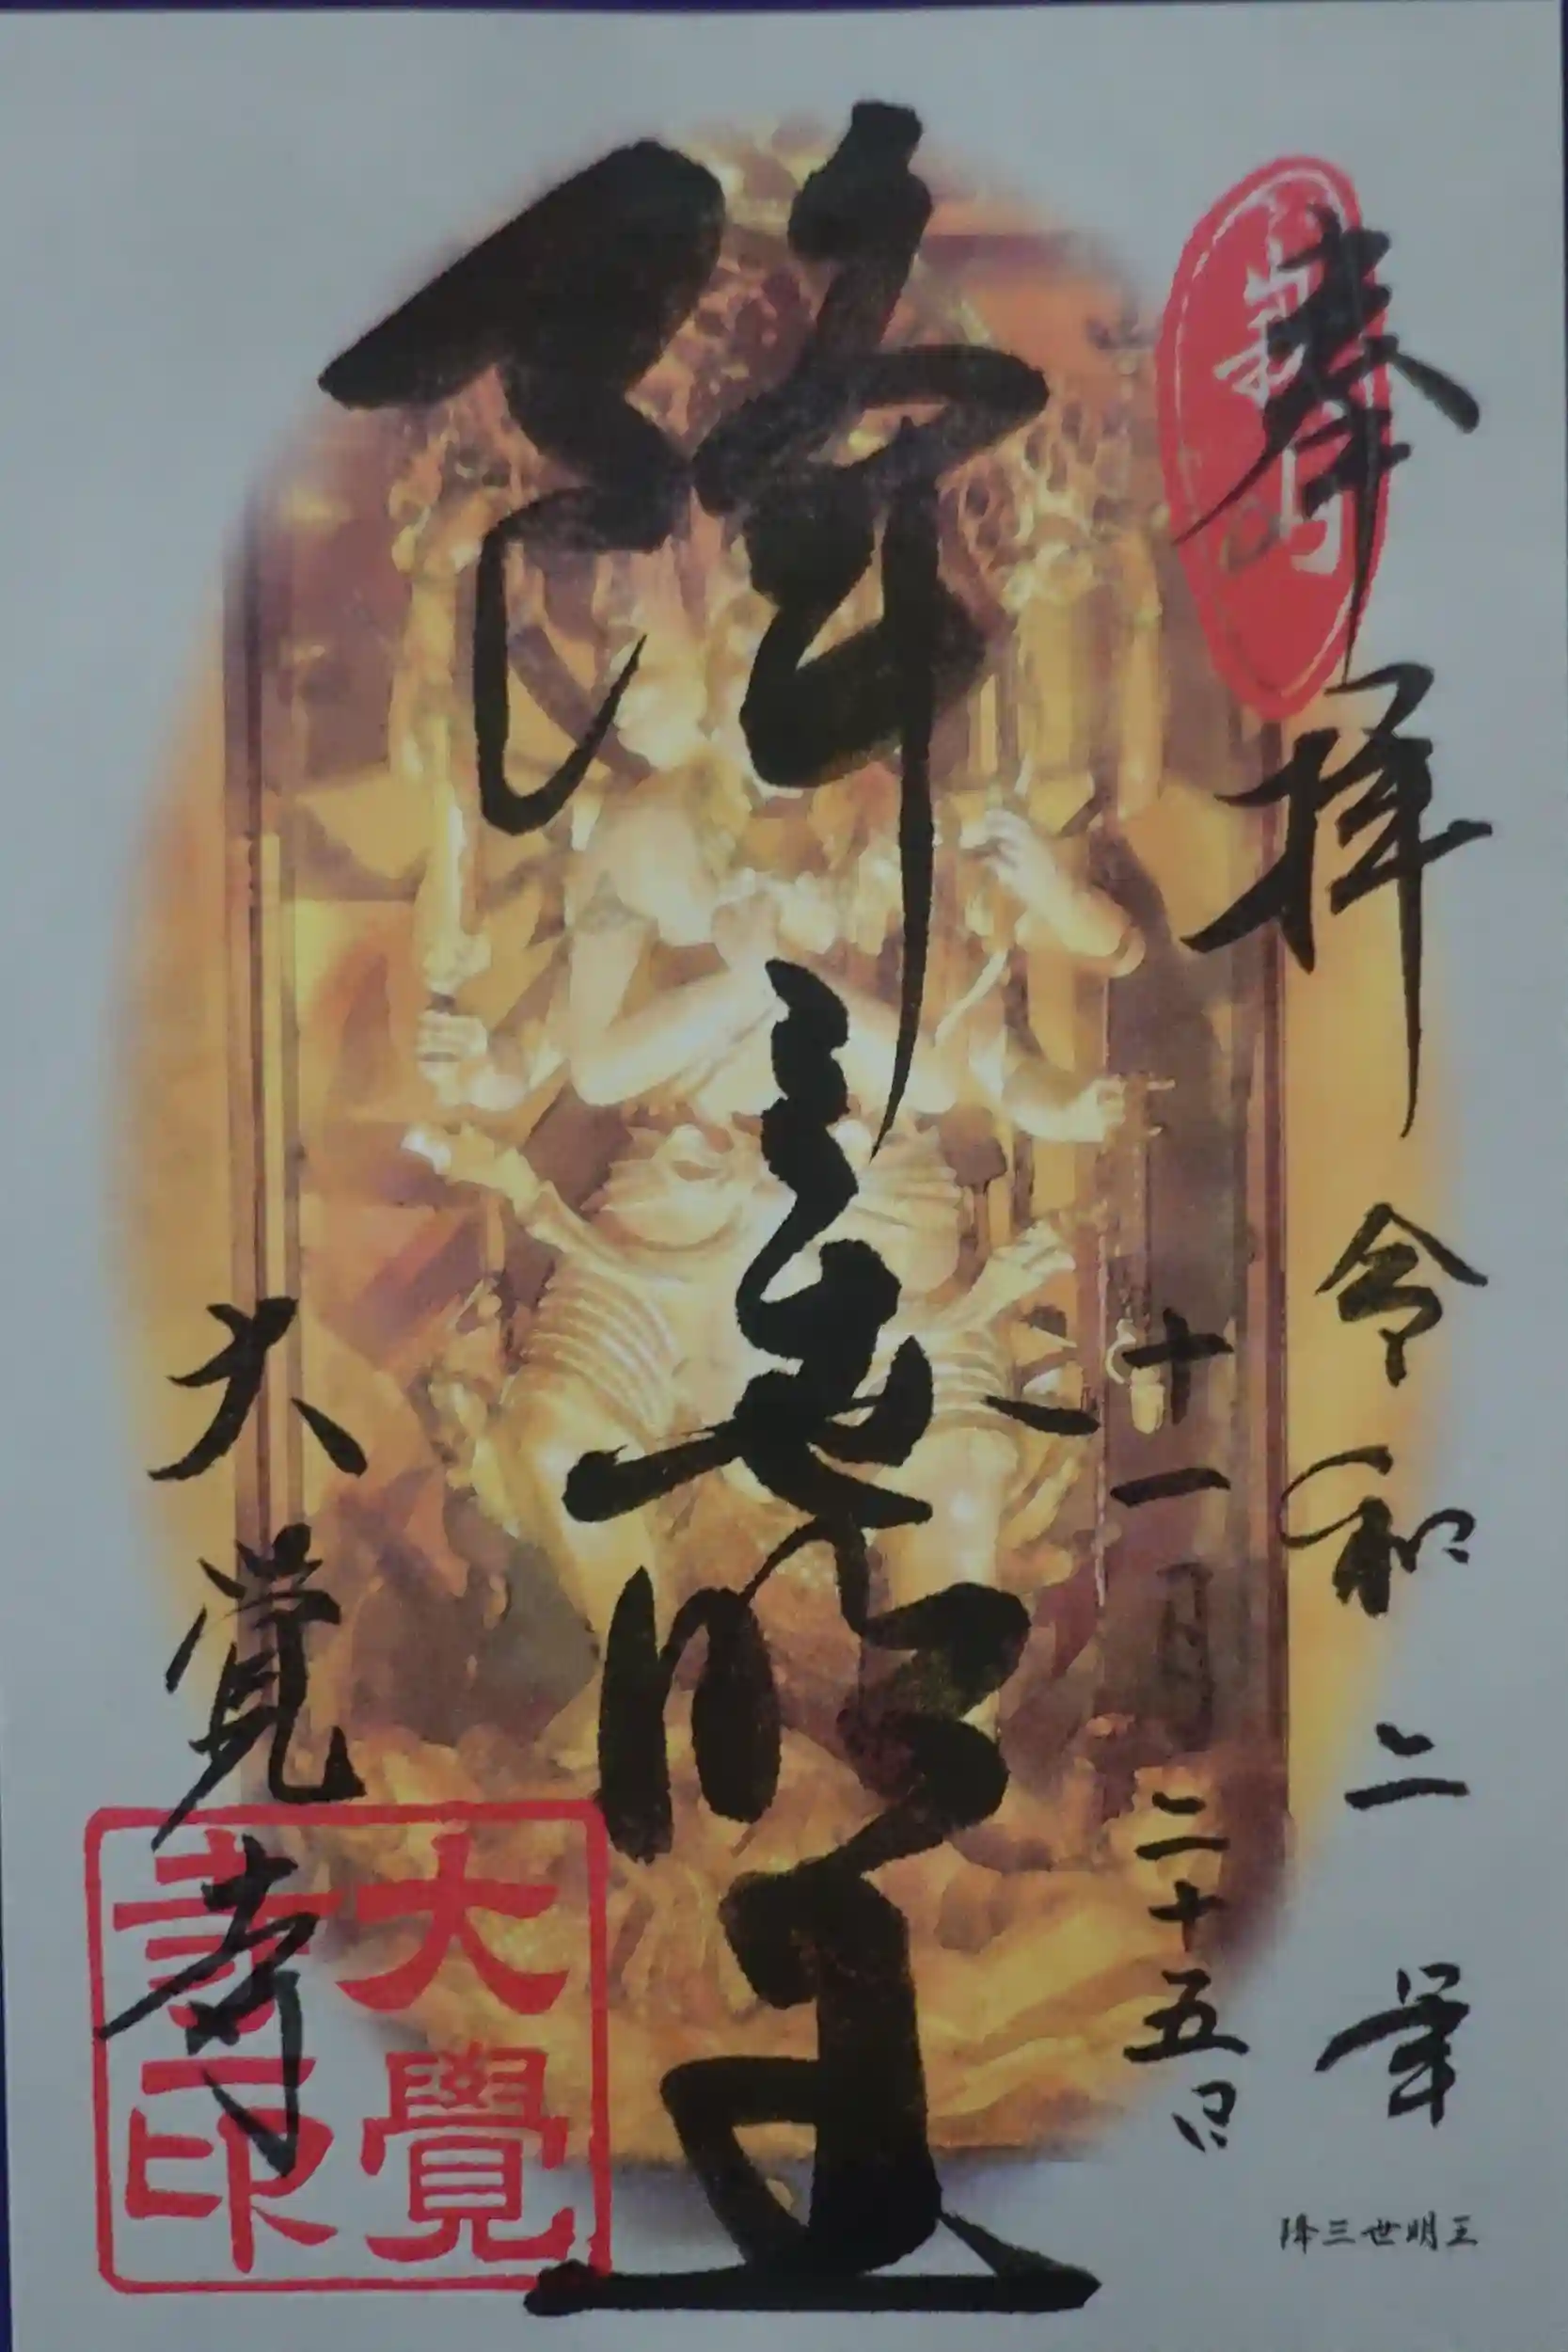 奉拝
令和二年
十一月二十五日
降三世明王
大覚寺
大覺寺印
降三世明王